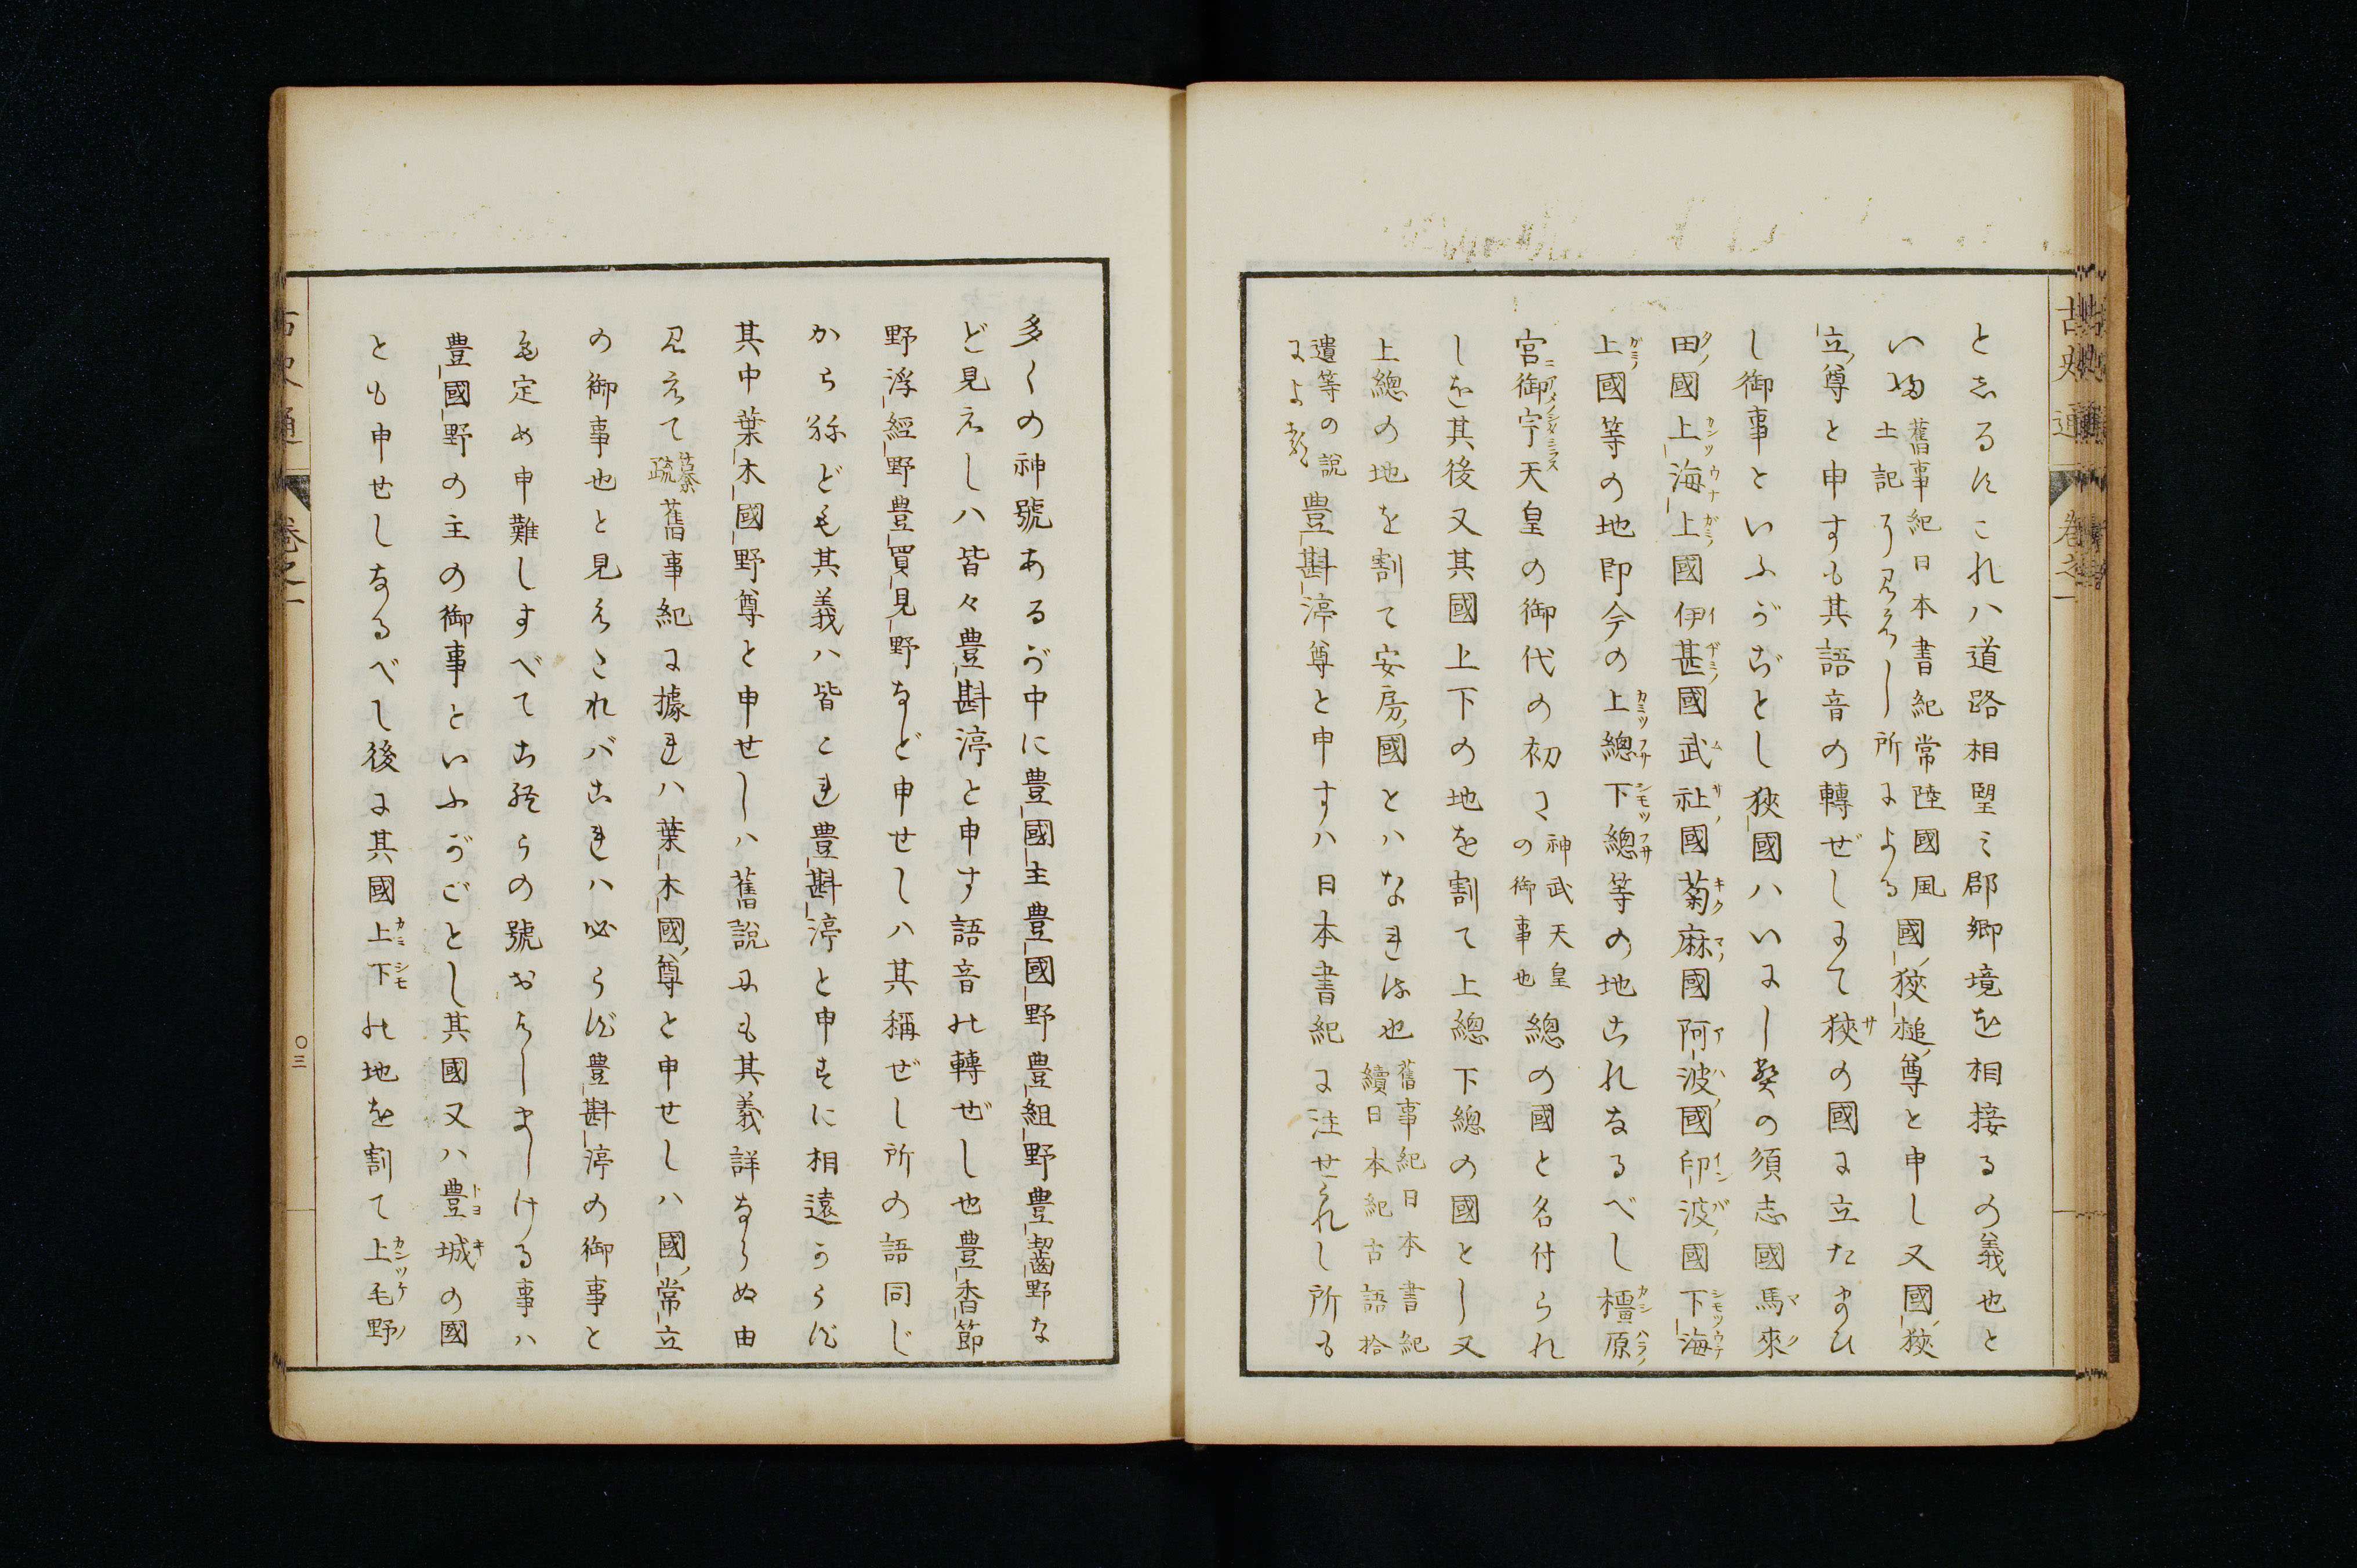 としるすこれハ道路相望ミ郡郷境を相接るの義也と
いふ舊事紀日本書紀常陸國風土記に見えし所による國狹槌尊と申し又國狹
立尊と申すも其語音の轉ぜしにて狹の國に立たまひ
し御事といふがごとし狹國ハいにし への須志國馬來
田國上海上國伊甚國武社國菊麻國阿波國印波國下海
上國等の地即今の上總下總等の地これなるべし橿原
宮御宇天皇の御代の初に神武天皇の御事也總の國と名付られ
しを其後又其國上下の地を割て上總下總の國とし又
上總の地を割て安房國とハなされし也舊事紀日本書紀續日本紀古語拾
遺等の說による豊斟渟尊と申すハ日本書紀に注せられし所も
多くの神號あるが中に豊國主豊國野豊組野豊齧野な
ど見えしハ皆々豊斟渟と申す語音の轉ぜし也豊香節
野浮經野豊買見野など申せしハ其稱ぜし所の語同じ
からねども其義ハ皆これ豊斟渟と申すに相遠からず
其中葉木國野尊と申せしハ舊說にも其義詳ならぬ由
見えて纂疏舊事紀に據れハ葉木國尊と申せしハ國常立
の御事也と見えこれバこれハ必らず豊斟渟の御事と
も定め申難しすべてこれらの號おはしましける事ハ
豊國野の主の御事といふがごとし其國又ハ豊城の國
とも申せしなるべし後に其國上下の地を割て上毛野
古史通
巻之一
〇三